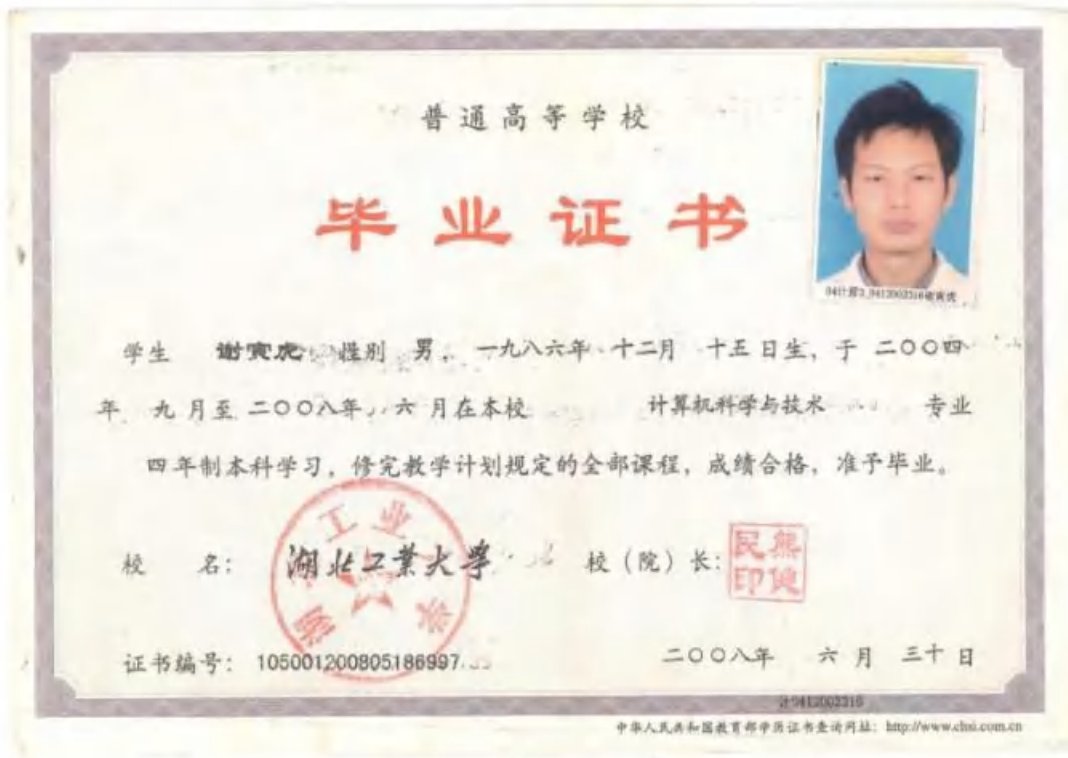 普通高等学校
毕业证书
04计算3 0412002316谢寅虎
学生 谢寅虎 性别 男, 一九八六年 十二月 十五日生, 于 二〇〇四
年 九月至 二〇〇八年 六月在本校 计算机科学与技术 专业
四年制本科学习, 修完教学计划规定的全部课程, 成绩合格, 准予毕业。
校 名: 湖北工業大學 校(院)长: 熊健民印
湖 工业 学
证书编号: 105001200805186997 二〇〇八年 六月 三十日
0412002316
中华人民共和国教育部学历证书查询网址: http://www.chsi.com.cn